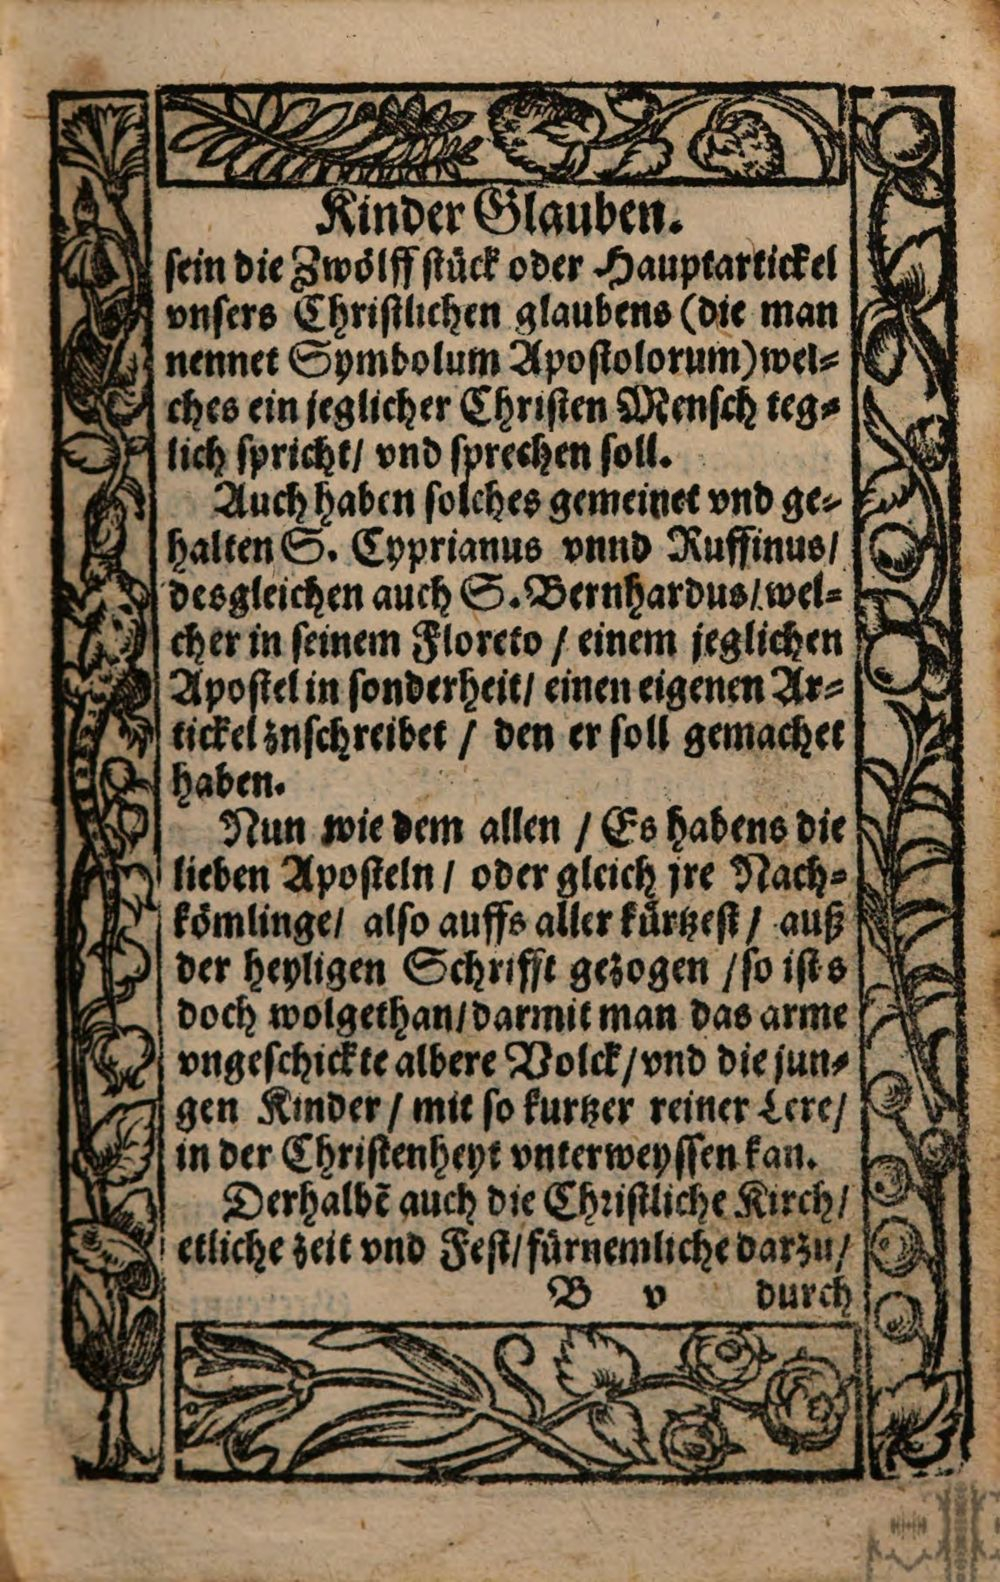 Kinder Glauben.
sein die Zwölff stück oder Hauptartickel
vnsers Christlichen glaubens (die man
nennet Symbolum Apostolorum) wel⸗
ches ein jeglicher Christen Mensch teg⸗
lich spricht/ vnd sprechen soll.
Auch haben solches gemeinet vnd ge⸗
halten S. Cyprianus vnnd Ruffinus/
desgleichen auch S. Bernhardus/ wel⸗
cher in seinem Floreto / einem jeglichen
Apostel in sonderheit/ einen eigenen Ar⸗
tickel znschreibet / den er soll gemachet
haben.
Nun wie dem allen / Es habens die
lieben Aposteln / oder gleich jre Nach⸗
kömlinge/ also auffs aller kürtzest / auß
der heyligen Schrifft gezogen / so ists
doch wolgethan/ darmit man das arme
vngeschickte albere Volck/ vnd die jun⸗
gen Kinder / mit so kurtzer reiner Lere/
in der Christenheyt vnterweyssen kan.
Derhalbē auch die Christliche Kirch/
etliche zeit vnd Fest/ fürnemliche darzu/
B v durch